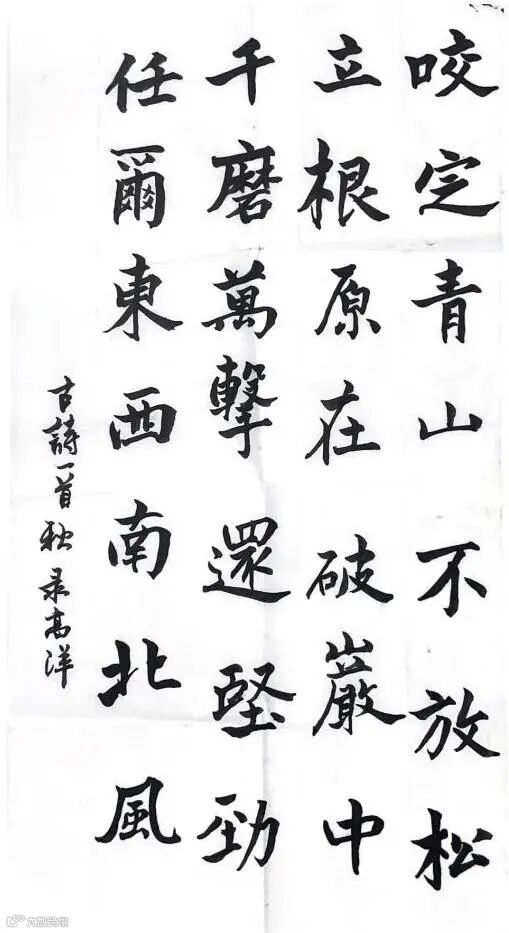 咬定青山不放松
立根原在破巖中
千磨萬擊還堅勁
任爾東西南北風
古詩一首 秋 录高洋